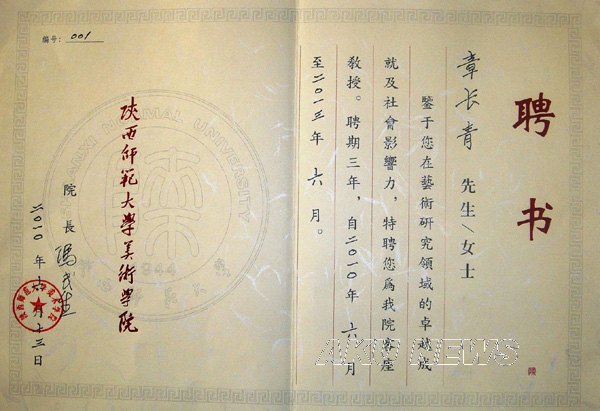 聘书
章长青 先生/女士
鑒于您在藝術研究領域的卓越成
就及社會影響力，特聘您爲我院客座
教授。聘期三年，自二〇一〇年 六 月
至二〇一三年 六 月。
编号：001
陝西师範大學美術學院
院 長 冯民生
二〇一〇年 月十三日
NORMAL UNIVERSITY
1944
NEWS